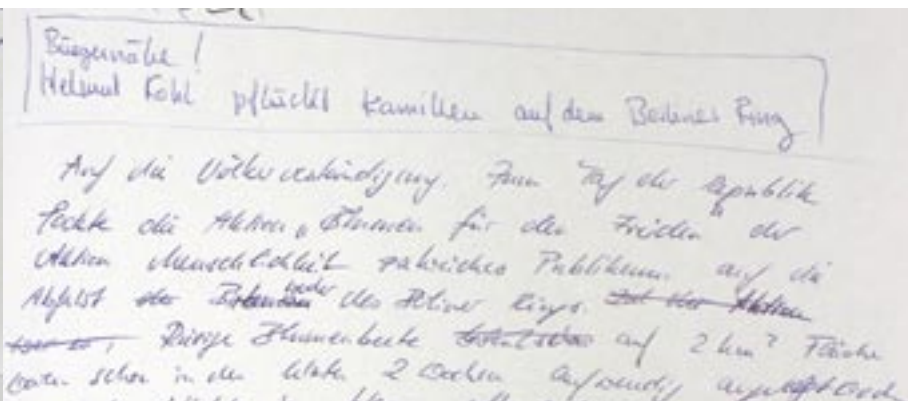 Bürgernähe!
Helmut Kohl pflückt Kamillen auf dem Berliner Ring
Auf die Völkerverständigung. Zum Tag der Republik
lockte die Aktion „Blumen für den Frieden" der
Aktion Menschlichkeit zahreiches Publikum auf die
Abfahrt der des Berliner Rings. Ziel der Aktion
war es, Riesige Blumenbeete auf 2 km² Fläche
waren schon in den letzten 2 Wochen aufwendig angelegt